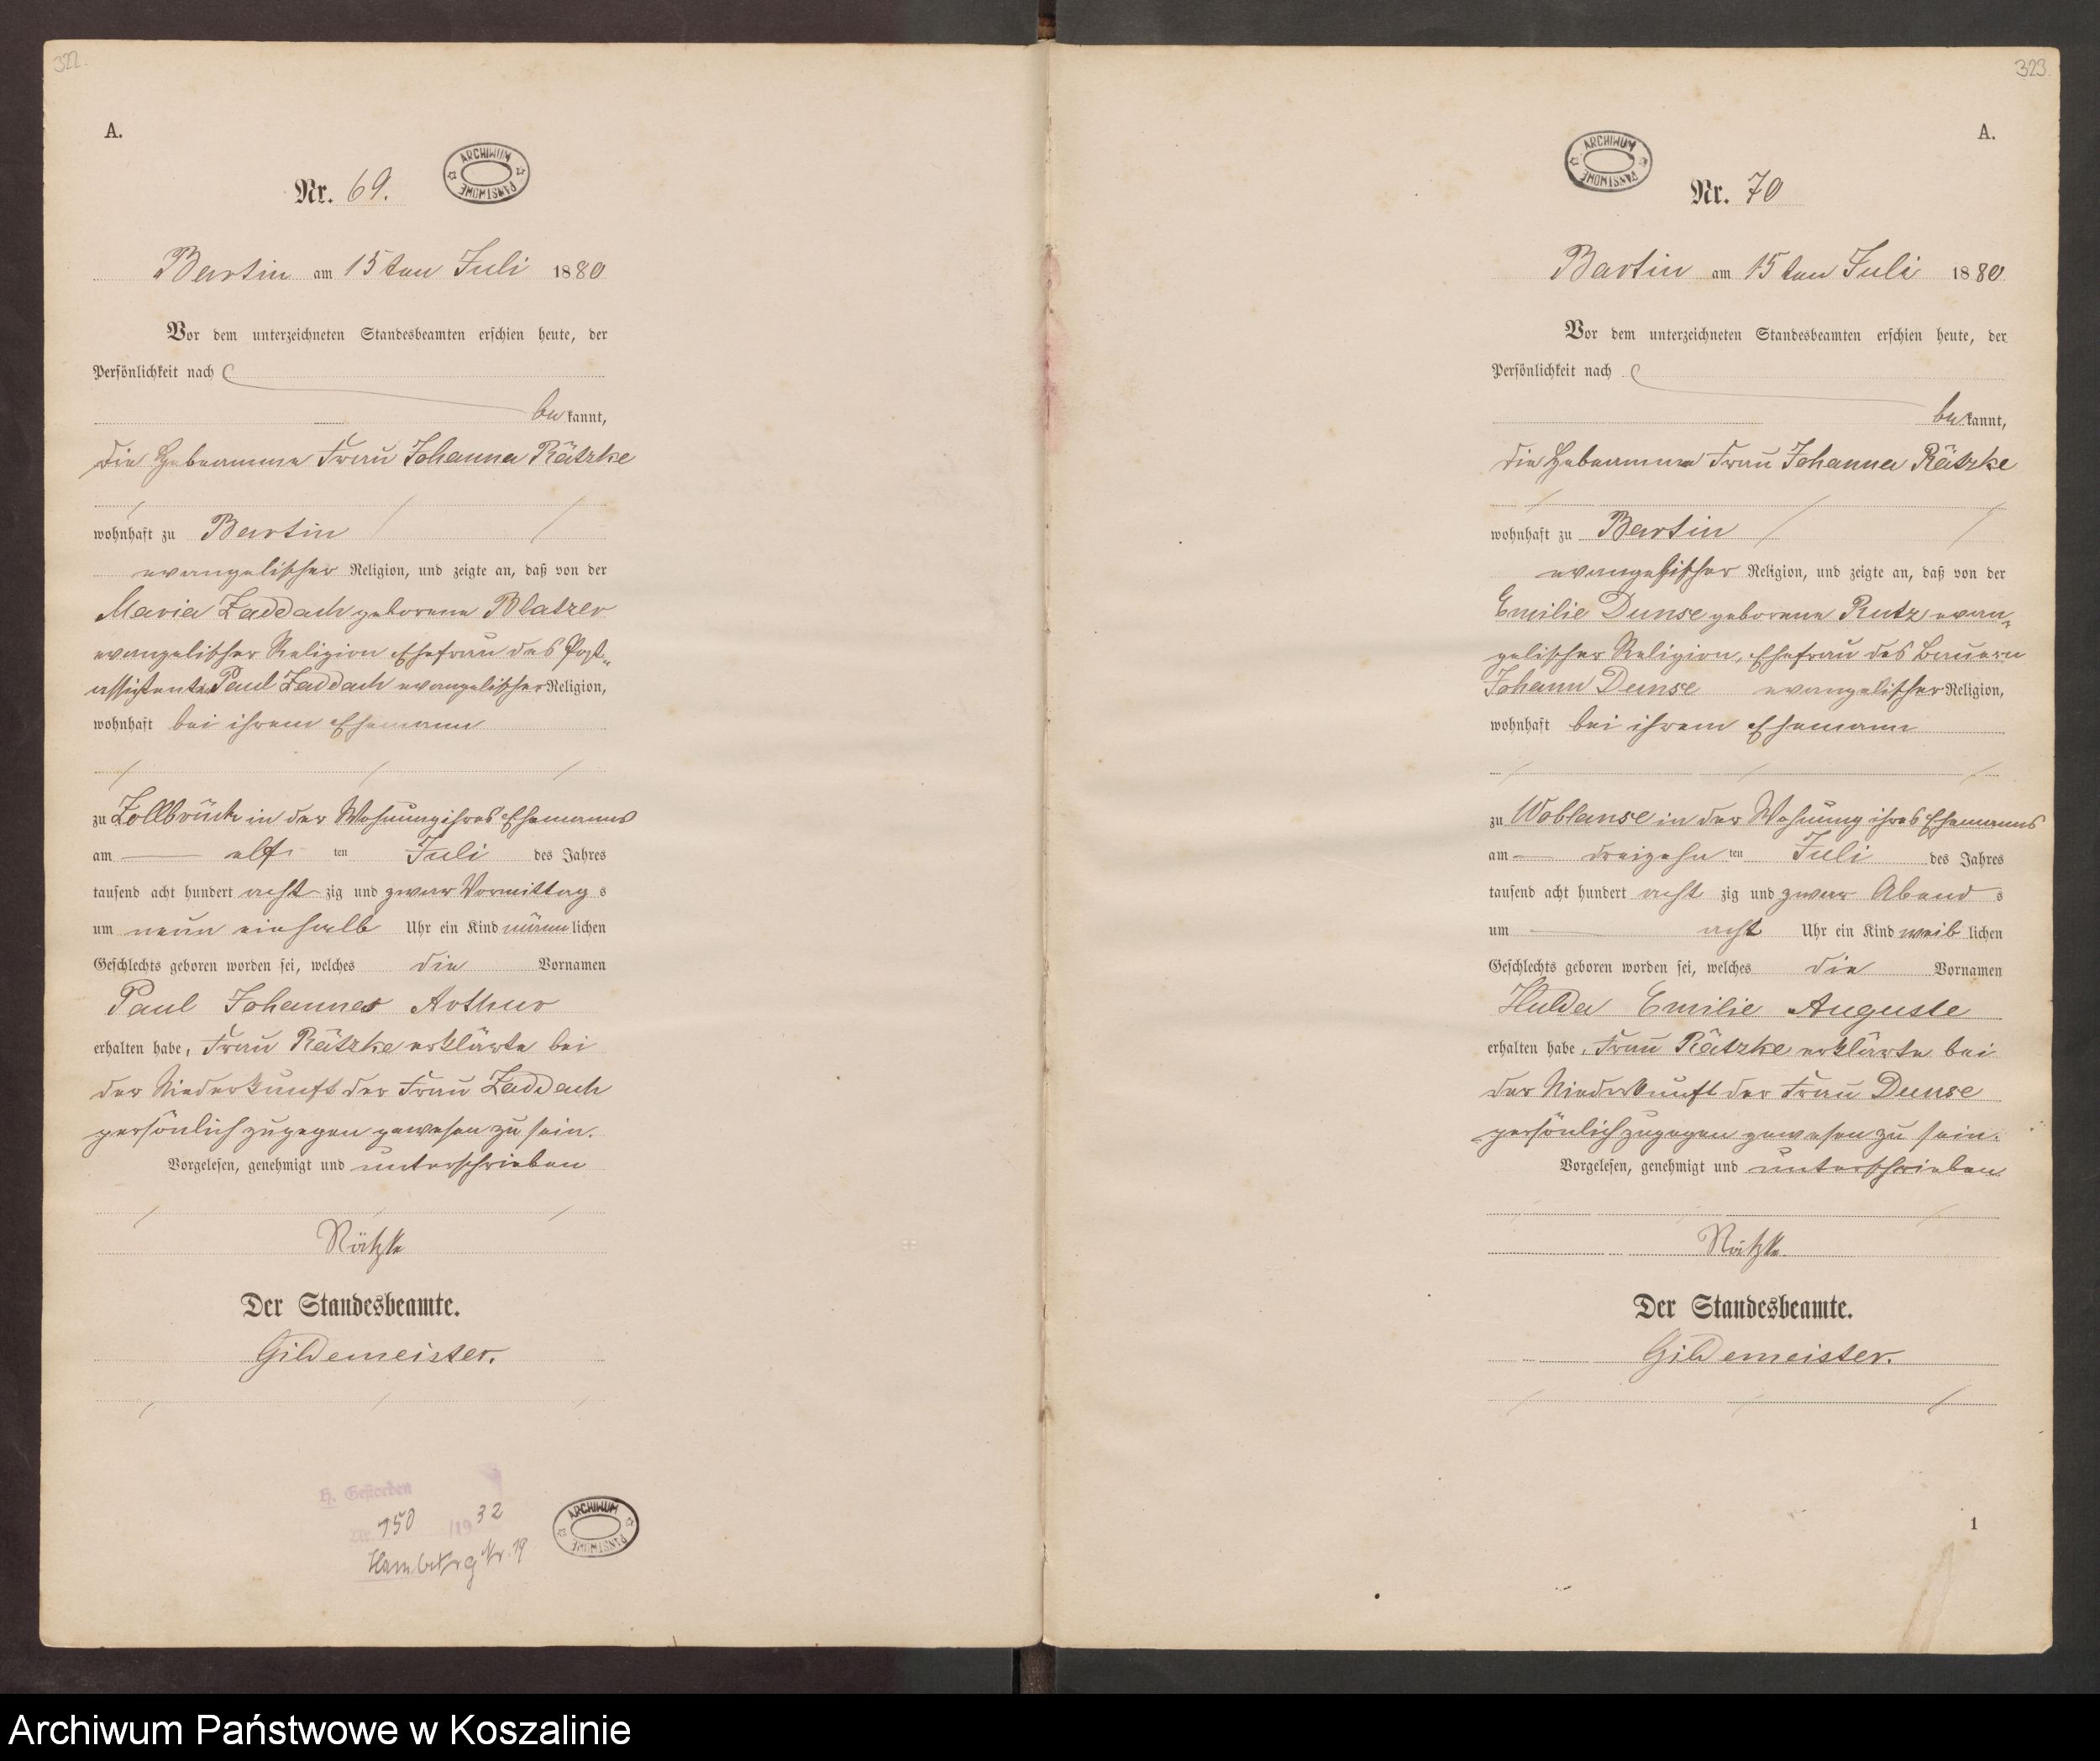 322.
A.
ARCHIWUM PAŃSTWOWE
Nr. 69.
Bartin am 15ten Juli 1880
Vor dem unterzeichneten Standesbeamten erschien heute, der
Persönlichkeit nach
bekannt,
die Hebeamme Frau Johanna Rätzke
wohnhaft zu Bartin
evangelischer Religion, und zeigte an, daß von der
Maria Zaddach geborene Blatzer
evangelischer Religion Ehefrau des Post-
assistenten Paul Zaddach evangelischer Religion,
wohnhaft bei ihrem Ehemann
zu Zollbrück in der Wohnung ihres Ehemanns
am elf ten Juli des Jahres
tausend acht hundert acht zig und zwar Vormittag s
um neun einhalb Uhr ein Kind männ lichen
Geschlechts geboren worden sei, welches die Vornamen
Paul Johannes Arthur
erhalten habe, Frau Rätzke erklärte bei
der Niederkunft der Frau Zaddach
persönlich zugegen gewesen zu sein.
Vorgelesen, genehmigt und unterschrieben
Rätzke
Der Standesbeamte.
Gildemeister.
H. Gestorben
Nr. 150 /1932
Hamburg Nr. 19
ARCHIWUM PAŃSTWOWE
323.
A.
ARCHIWUM PAŃSTWOWE
Nr. 70
Bartin am 15ten Juli 1880
Vor dem unterzeichneten Standesbeamten erschien heute, der
Persönlichkeit nach
bekannt,
die Hebeamme Frau Johanna Rätzke
wohnhaft zu Bartin
evangelischer Religion, und zeigte an, daß von der
Emilie Dunse geborene Rutz evan-
gelischer Religion, Ehefrau des Bauern
Johann Dunse evangelischer Religion,
wohnhaft bei ihrem Ehemann
zu Woblanse in der Wohnung ihres Ehemanns
am dreizehn ten Juli des Jahres
tausend acht hundert acht zig und zwar Abend s
um acht Uhr ein Kind weib lichen
Geschlechts geboren worden sei, welches die Vornamen
Hulda Emilie Auguste
erhalten habe, Frau Rätzke erklärte bei
der Niederkunft der Frau Dunse
persönlich zugegen gewesen zu sein.
Vorgelesen, genehmigt und unterschrieben
Rätzke
Der Standesbeamte.
Gildemeister.
1
Archiwum Państwowe w Koszalinie